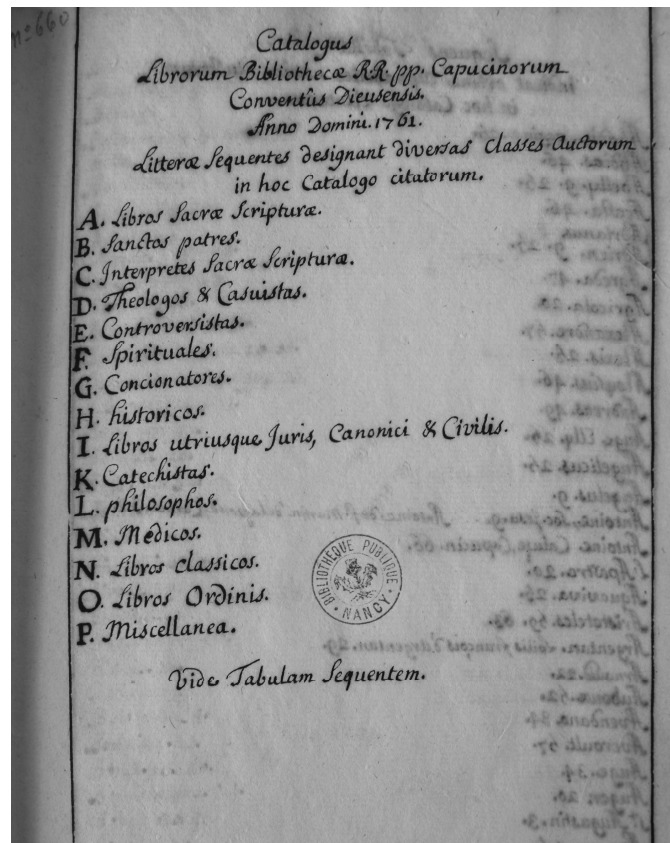 nº 660
Catalogus
Librorum Bibliothecæ RR. pp. Capucinorum
Conventûs Dieusensis.
Anno Domini. 1761.
Litteræ Sequentes designant diversas Classes Auctorum
in hoc Catalogo citatorum.
A. Libros Sacræ Scripturæ.
B. Sanctos patres.
C. Interpretes Sacræ Scripturæ.
D. Theologos & Casuistas.
E. Controversistas.
F. Spirituales.
G. Concionatores.
H. historicos.
I. Libros utriusque Juris, Canonici & Civilis.
K. Catechistas.
L. philosophos.
M. Medicos.
N. Libros Classicos.
O. Libros Ordinis.
P. Miscellanea.
BIBLIOTHÈQUE PUBLIQUE
NANCY
Vide Tabulam Sequentem.